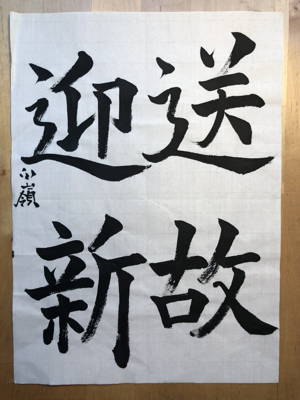 送故
迎新
小嶺